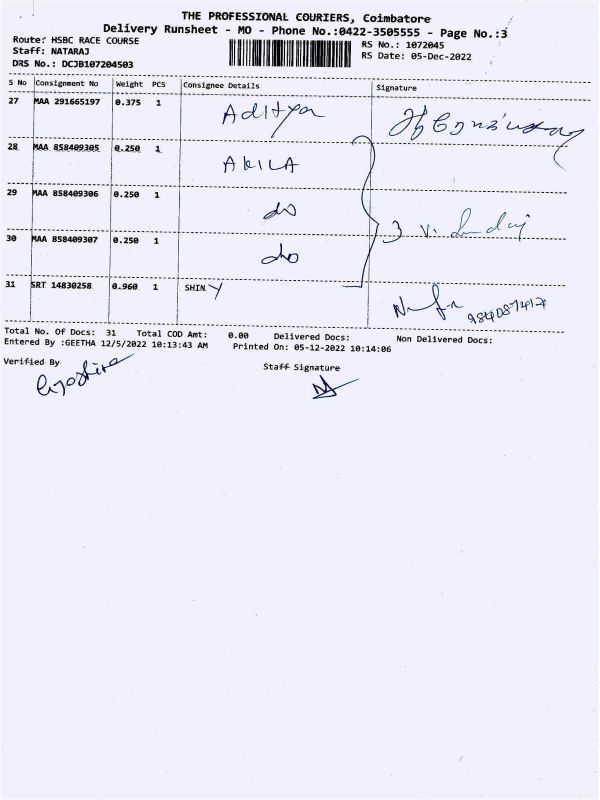 THE PROFESSIONAL COURIERS, Coimbatore
Delivery Runsheet - MO - Phone No.:0422-3505555 - Page No.:3
Route: HSBC RACE COURSE
Staff: NATARAJ
DRS No.: DCJB107204503
RS No.: 1072045
RS Date: 05-Dec-2022
S No Consignment No Weight PCS Consignee Details Signature
27 MAA 291665197 0.375 1 Aditya
28 MAA 858409305 0.250 1 AKILA
29 MAA 858409306 0.250 1 do
30 MAA 858409307 0.250 1 do 3
31 SRT 14830258 0.960 1 SHINY
Total No. Of Docs: 31 Total COD Amt: 0.00 Delivered Docs: Non Delivered Docs:
Entered By :GEETHA 12/5/2022 10:13:43 AM Printed On: 05-12-2022 10:14:06
Verified By
Staff Signature